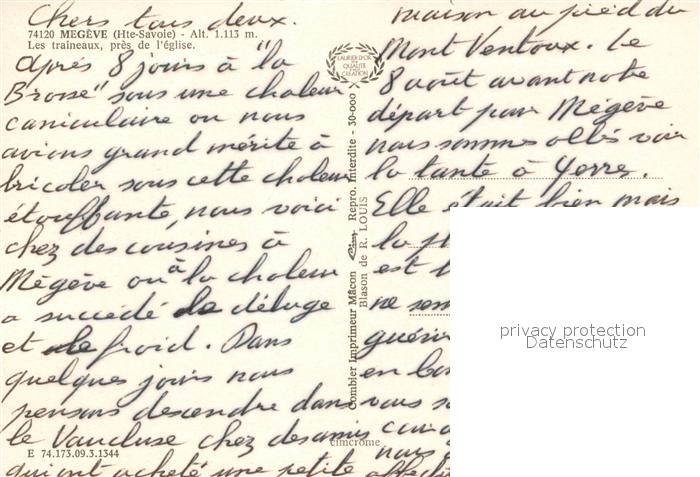 Chers tous deux.
74120 MEGÈVE (Hte-Savoie) - Alt. 1.113 m.
Les traîneaux, près de l'église.
après 8 jours à "la
Brosse" sous une chaleur
caniculaire ou nous
avions grand mérite à
bricoler sous cette chaleur
étouffante, nous voici
chez des cousines à
Mégève où à la chaleur
a succédé le déluge
et le froid. Dans
quelques jours nous
pensons descendre dans
le Vaucluse chez des amis
E 74.173.09.3.1344
qui ont acheté une petite
LAURIER D'OR
DE LA
QUALITÉ
CRÉATION
Combier Imprimeur Mâcon Cim Repro. Interdite - 30-000
Blason de R. LOUIS
cimcrome
maison au pied du
Mont Ventoux. Le
8 août avant notre
départ pour Mégève
nous sommes allés voir
la tante à Yerres.
Elle était bien mais
la
est
ne
en
vous
nous
privacy protection
Datenschutz